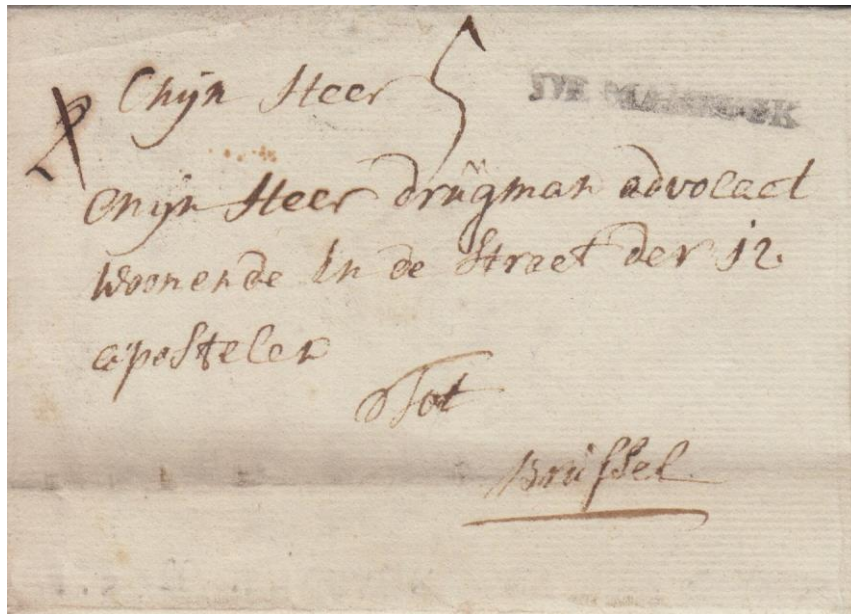 Mijn Heer 5
Mijn Heer drügman advocaet
Woonende in de Straet der 12.
apostelen
Tot
Brüssel